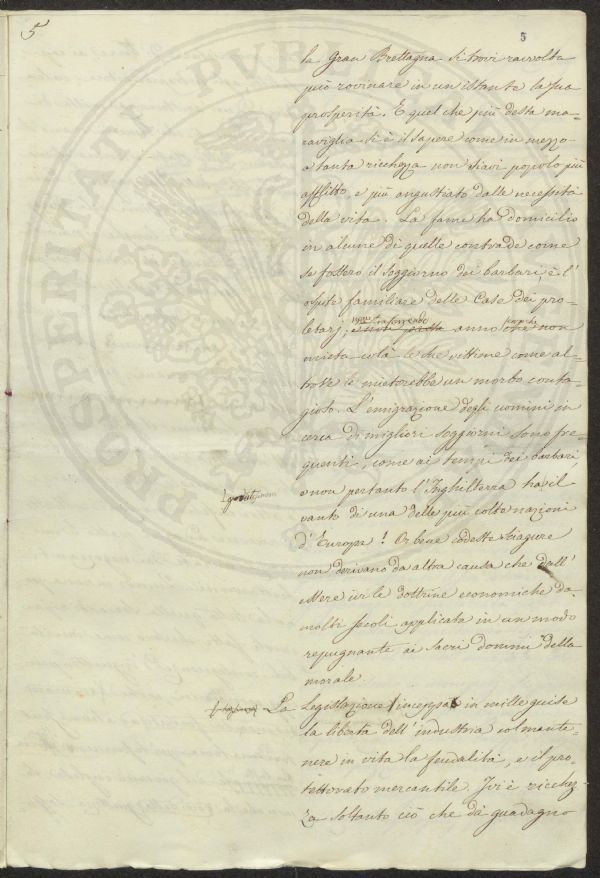 5
5
la Gran Brettagna si trovi ravvolta
può rovinare in un istante la sua
prosperità. E quel che più desta ma-
raviglia si è il sapere come in mezzo
a tanta ricchezza non siavi popolo più
afflitto e più angustiato dalle necessità
della vita. La fame ha domicilio
in alcune di quelle contrade come
se fossero il soggiorno dei barbari, è l'
ospite familiare delle Case dei pro-
letarj; anno che non
mieta colà le vittime come al-
trove le mieterebbe un morbo conta-
gioso. L'emigrazione degli uomini in
cerca di migliori soggiorni sono fre-
quenti, come ai tempi dei barbari
e non pertanto l'Inghilterra ha il
vanto di una delle più colte nazioni
d'Europa! Or bene codeste sciagure
non derivano da altra causa che dall'
essere ivi le dottrine economiche da
molti secoli applicata in un modo
repugnante ai sacri dommi della
morale.
La Legislazione inceppa in mille guise
la libertà dell'industria col mante-
nere in vita la feudalità, e il pro-
tettorato mercantile. Ivi è ricchez-
za soltanto ciò che dà guadagno
PROSPERITATI PUBL